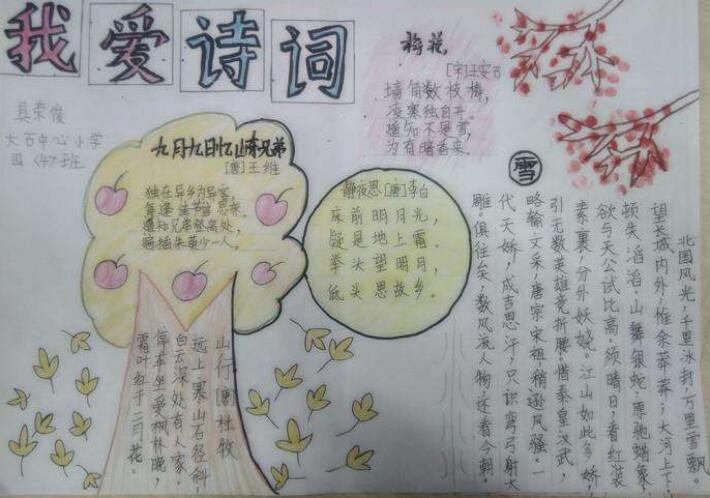 我爱诗词
县荣俊
大石中心小学
四〈4〉班
九月九日忆山东兄弟
[唐]王维
独在异乡为异客
每逢佳节倍思亲
遥知兄弟登高处,
遍插朱萸少一人。
梅花,
[宋]王安石
墙角数枝梅,
凌寒独自开
遥知不是雪,
为有暗香来.
静夜思[唐]李白
床前明月光,
疑是地上霜。
举头望明月,
低头思故乡。
山行[唐]杜牧
远上寒山石径斜,
白云深处有人家。
停车坐爱枫林晚,
霜叶红于二月花。
雪
北国风光,千里冰封,万里雪飘。
望长城内外,惟余莽莽;大河上下,
顿失滔滔。山舞银蛇,原驰蜡象,
欲与天公试比高。须晴日,看红装
素裹,分外妖娆。江山如此多娇
引无数英雄竞折腰。惜秦皇汉武,
略输文采,唐宗宋祖稍逊风骚。一
代天娇,成吉思汗,只识弯弓射大
雕。俱往矣,数风流人物,还看今朝。